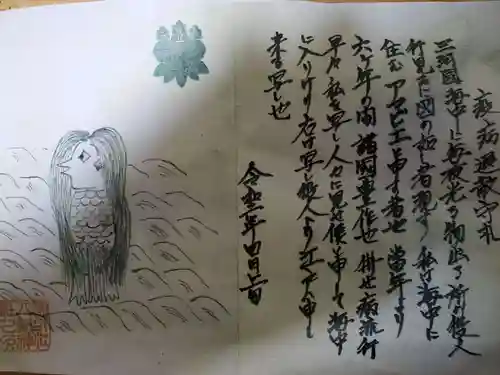 疫病退散守札
三河國海中に毎夜光る物出る所の役人
行見るに図の如く者現す 私は海中に
住む アマビエと申す者也 當年より
六ヶ年の間 諸国豊作也 併せ病流行
早々私を写し人々に見せ候と申して海中
に入りけり 右は写し役人より江戸へ申し
来る写し也
令和二年四月吉日